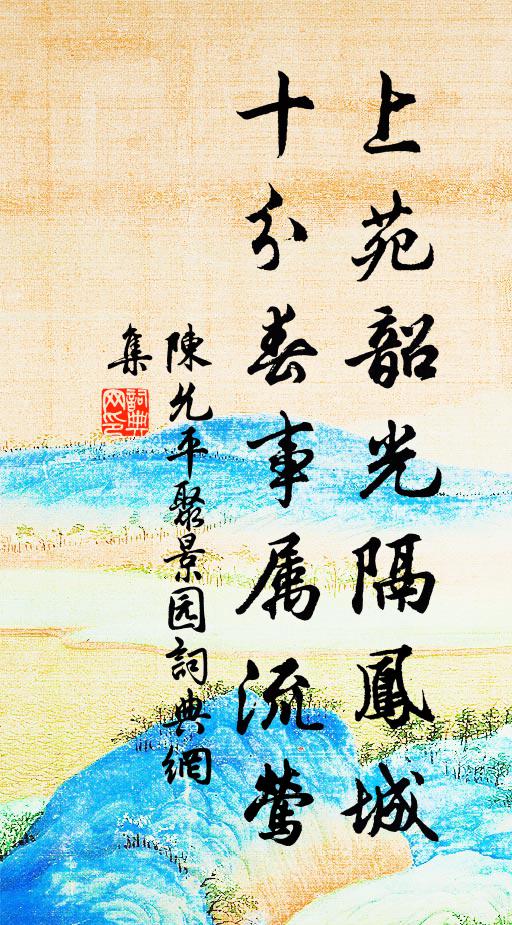 上苑韶光隔鳳城
十分春事属流莺
陳允平聚景园詞典網
集
詞典
网印